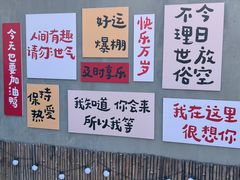 今天也要加油鸭
人间有趣
请勿泄气
好运
爆棚
及时享乐
快乐万岁
今日放空
不理世俗
保持
热爱
我知道 你会来
所以我等
我在这里
很想你